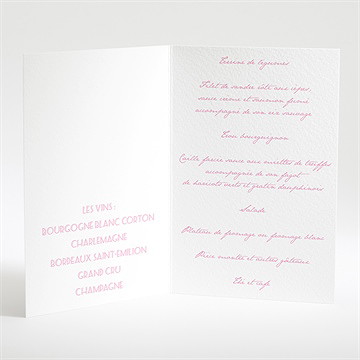 LES VINS :
BOURGOGNE BLANC CORTON
CHARLEMAGNE
BORDEAUX SAINT-EMILION
GRAND CRU
CHAMPAGNE
Terrine de légumes
Filet de sandre rôti aux cèpes,
sauce creme et saumon fumé
accompagné de son riz sauvage
Trou bourguignon
Caille farcie sauce aux miettes de truffes
accompagnée de son fagot
de haricots verts et gratin dauphinois
Salade
Plateau de fromage ou fromage blanc
Pièce montée et autres gâteaux
Thé et café